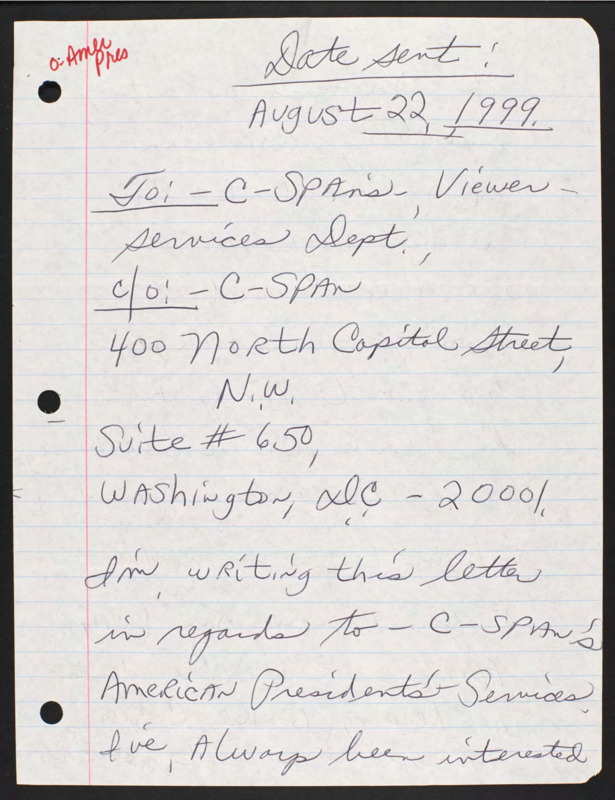 o-Amer
Pres
Date sent:
August 22, 1999.
To: - C-SPAN's, Viewer -
services Dept.,
c/o: - C-SPAN
400 North Capitol Street,
N.W.
Suite # 650,
WAShington, DC - 20001.
I'm, writing this letter
in regards to - C-SPAN's
AMERICAN Presidents' Services.
I've, Always been interested